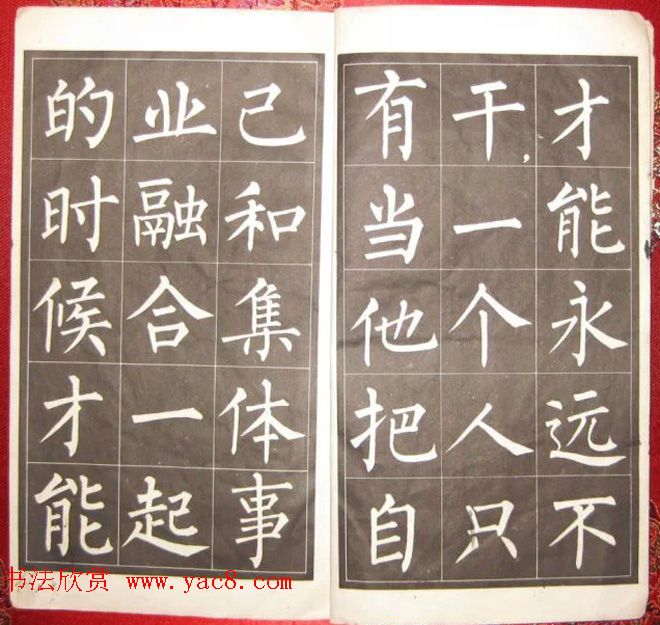 才能永远不
干,一个人只
有当他把自
己和集体事
业融合一起
的时候才能
书法欣赏 www.yac8.com